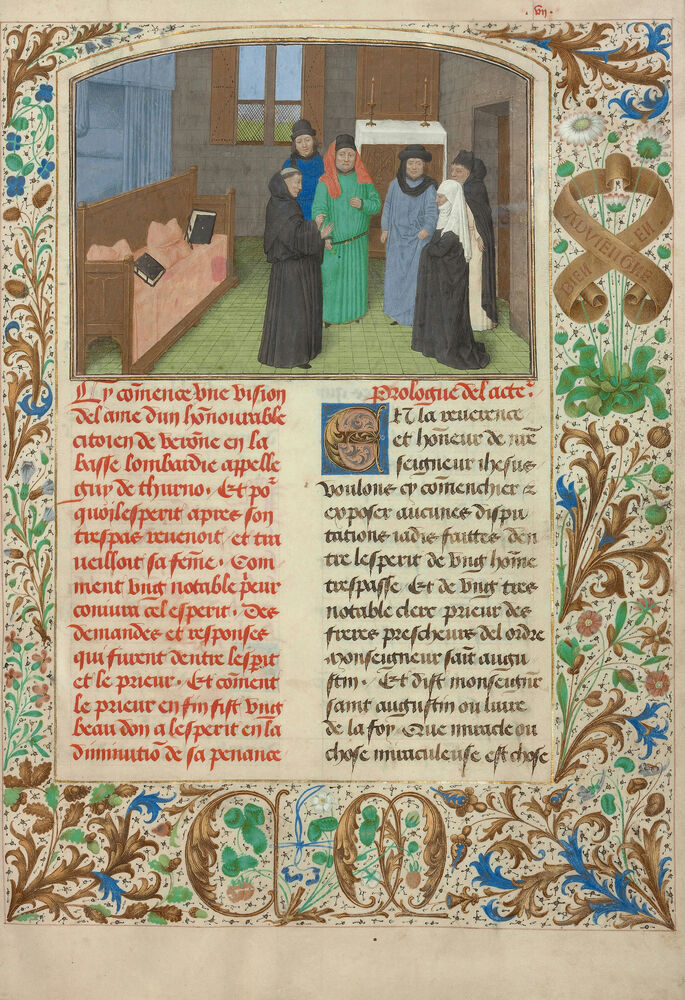 vij
Cy cōmence vne vision
del ame dun hōnourable
citoien de verone en la
basse lombardie appelle
guy de thurno. Et poʳ
quoi lesperit apres son
trespas reuenoit, et tra
ueilloit sa fēme. Com
ment vng notable p̄eur
coniura cel esperit. Des
demandes et responses
qui furent dentre lesp̄it
et le prieur. Et cōment
le prieur en fin fist vng
beau don a lesperit en la
diminutiō de sa penance
Prologue del acteʳ
Et la reuerence
et hōneur de nr̄e
seigneur ihesus
voulons cy cōmenchier et
exposer aucunes dispu
tations iadis faittes den
tre lesperit de vng hōme
trespasse Et de vng tres
notable clerc prieur des
freres prescheurs del ordre
monseigneur saīt augu
stin. Et dist monseignr̄
saint augustin ou liure
de la foy. Que miracle ou
chose miraculeuse est chose
BIEN EN
ADVIENGNE
C M